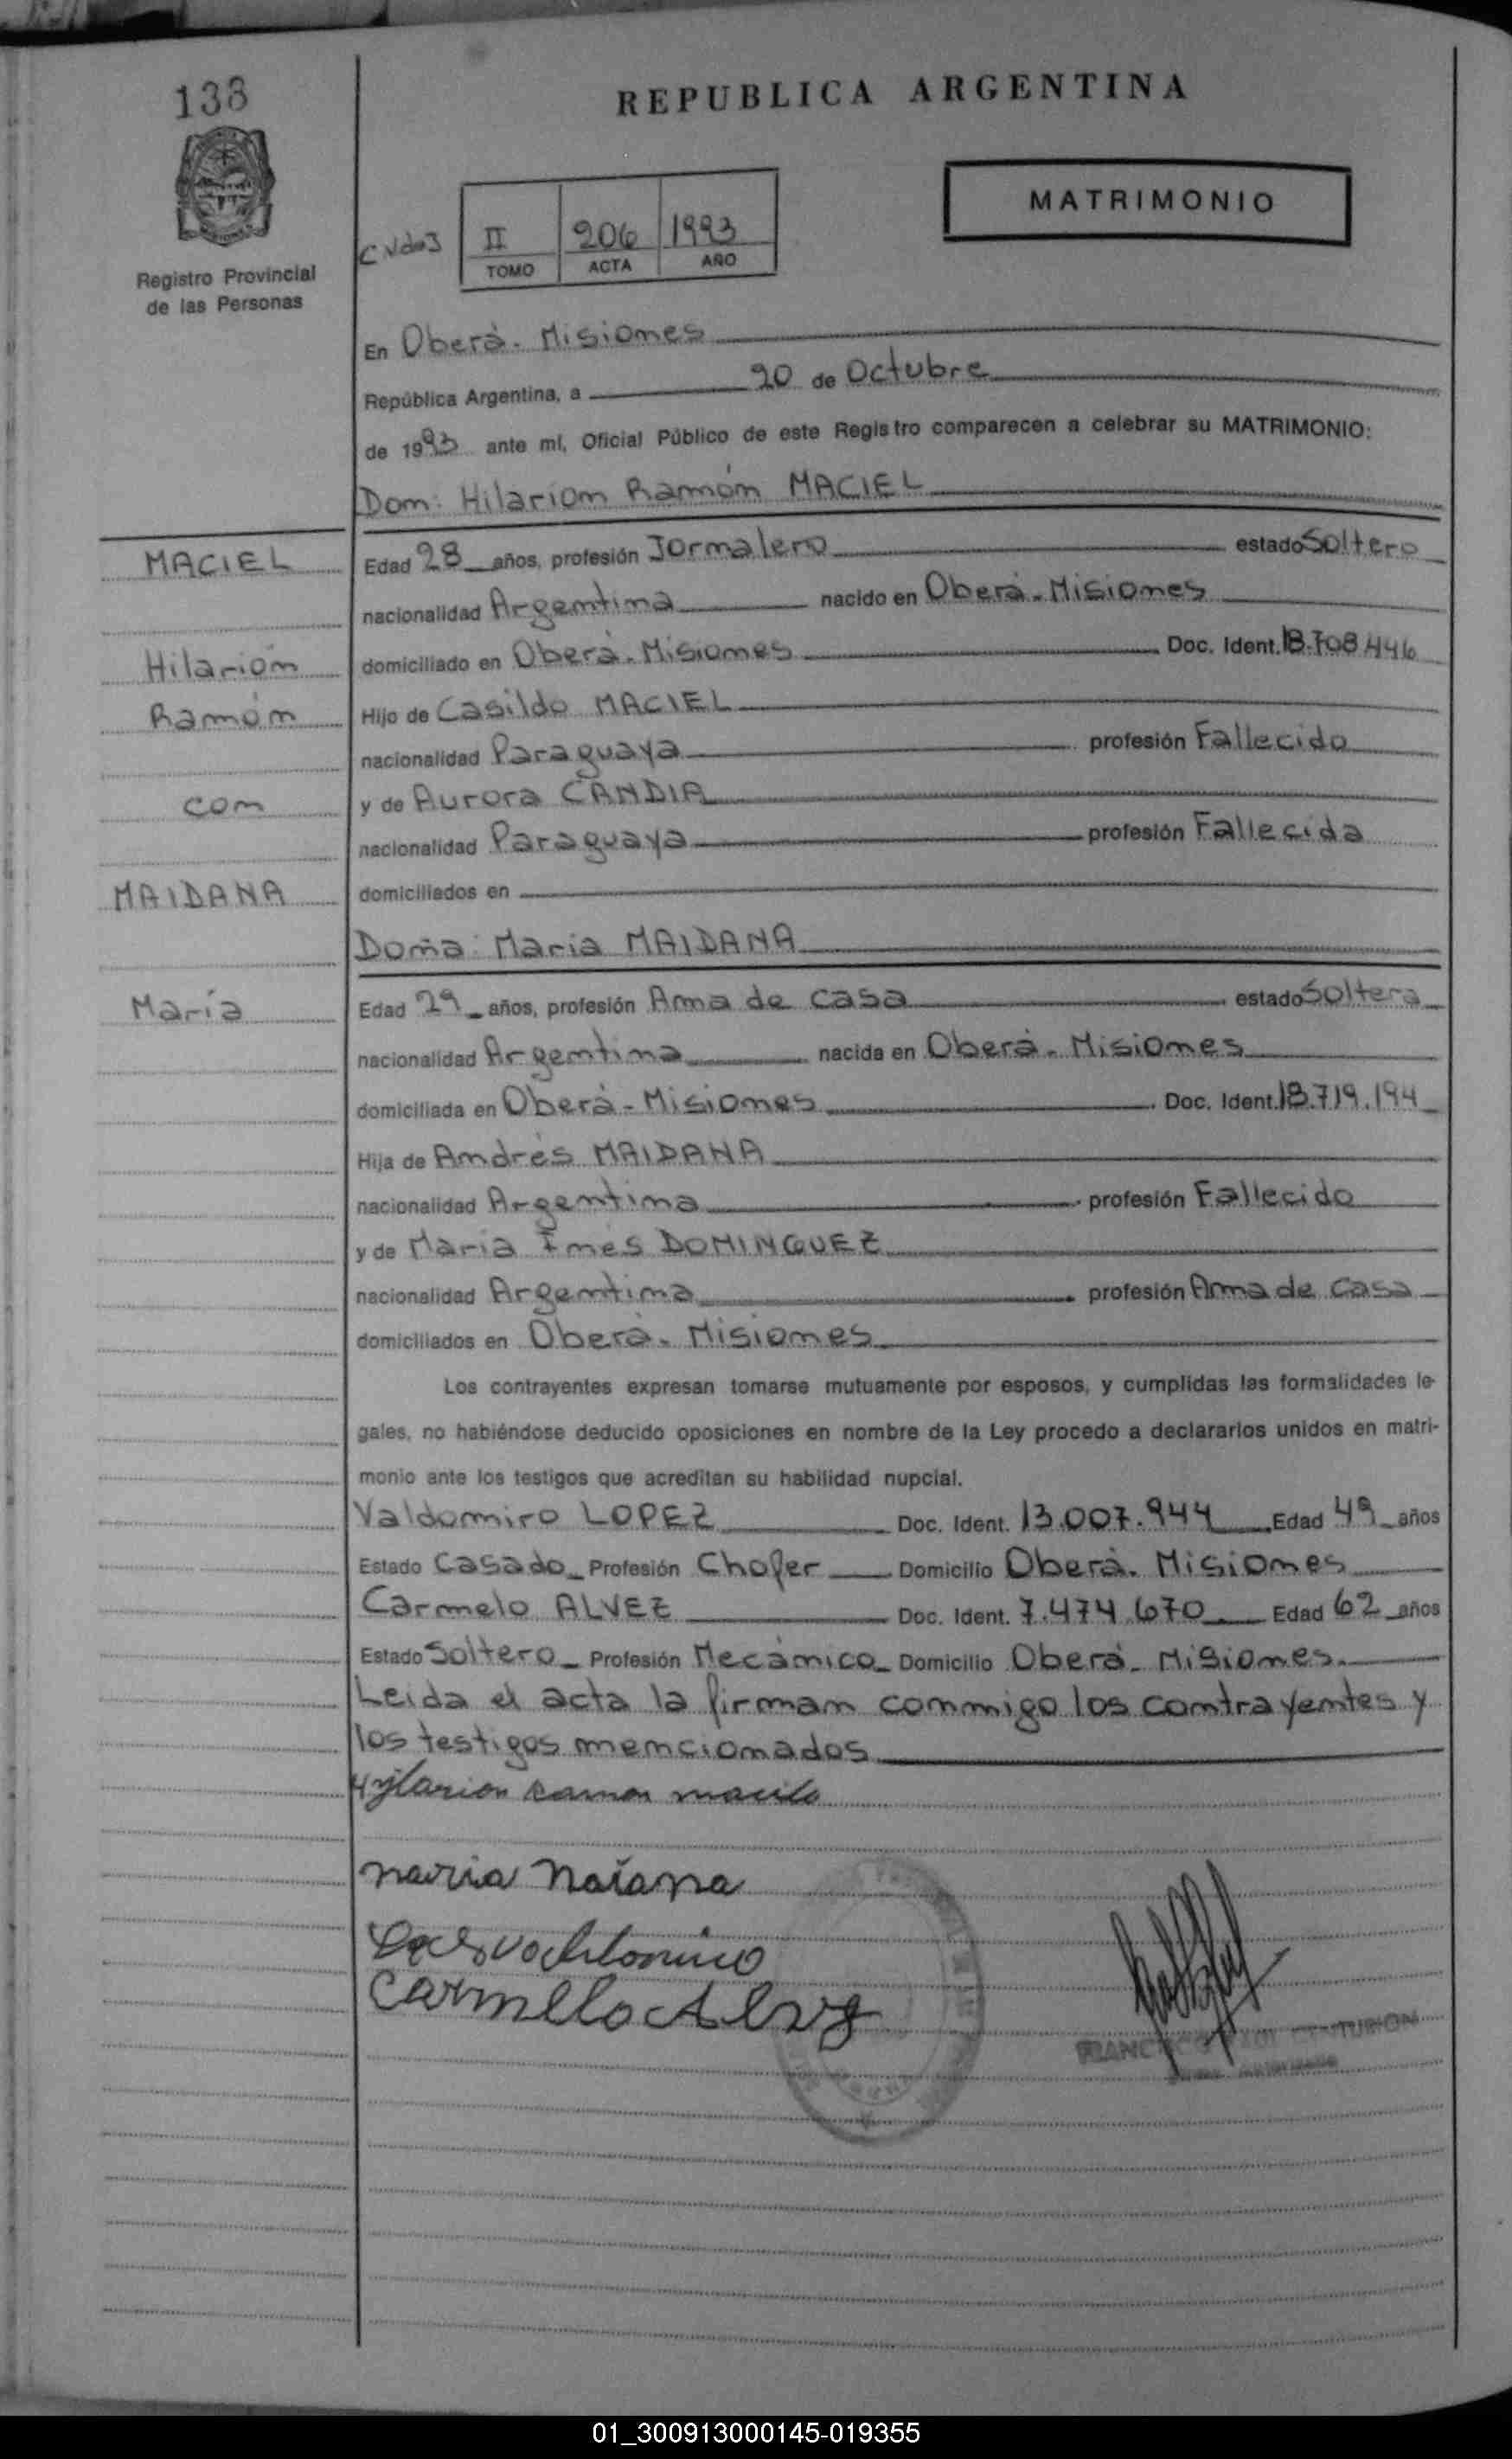 138
REPUBLICA ARGENTINA
MATRIMONIO
II 206 1993
TOMO ACTA AÑO
Registro Provincial
de las Personas
En Oberá - Misiones
República Argentina, a 20 de Octubre
de 1993 ante mí, Oficial Público de este Registro comparecen a celebrar su MATRIMONIO:
Don: Hilarion Ramón MACIEL
MACIEL
Edad 28 años, profesión Jornalero estado Soltero
nacionalidad Argentina nacido en Oberá - Misiones
Hilarión
domiciliado en Oberá - Misiones Doc. Ident. 18.708.446
Ramón
Hijo de Casildo MACIEL
nacionalidad Paraguaya profesión Fallecido
con
y de Aurora CANDIA
nacionalidad Paraguaya profesión Fallecida
MAIDANA
domiciliados en
Doña: Maria MAIDANA
María
Edad 29 años, profesión Ama de casa estado Soltera
nacionalidad Argentina nacida en Oberá - Misiones
domiciliada en Oberá - Misiones Doc. Ident. 18.719.194
Hija de Andrés MAIDANA
nacionalidad Argentina profesión Fallecido
y de Maria Inés DOMINGUEZ
nacionalidad Argentina profesión Ama de casa
domiciliados en Oberá - Misiones
Los contrayentes expresan tomarse mutuamente por esposos, y cumplidas las formalidades le-
gales, no habiéndose deducido oposiciones en nombre de la Ley procedo a declararlos unidos en matri-
monio ante los testigos que acreditan su habilidad nupcial.
Valdomiro LOPEZ Doc. Ident. 13.007.944 Edad 49 años
Estado Casado Profesión Chofer Domicilio Oberá - Misiones
Carmelo ALVEZ Doc. Ident. 7.474.670 Edad 62 años
Estado Soltero Profesión Mecánico Domicilio Oberá - Misiones.
Leida el acta la firman conmigo los contrayentes y
los testigos mencionados
Hylarion Ramon
maria
Carmelo Alvez
FRANCISCO CENTURION
01_300913000145-019355